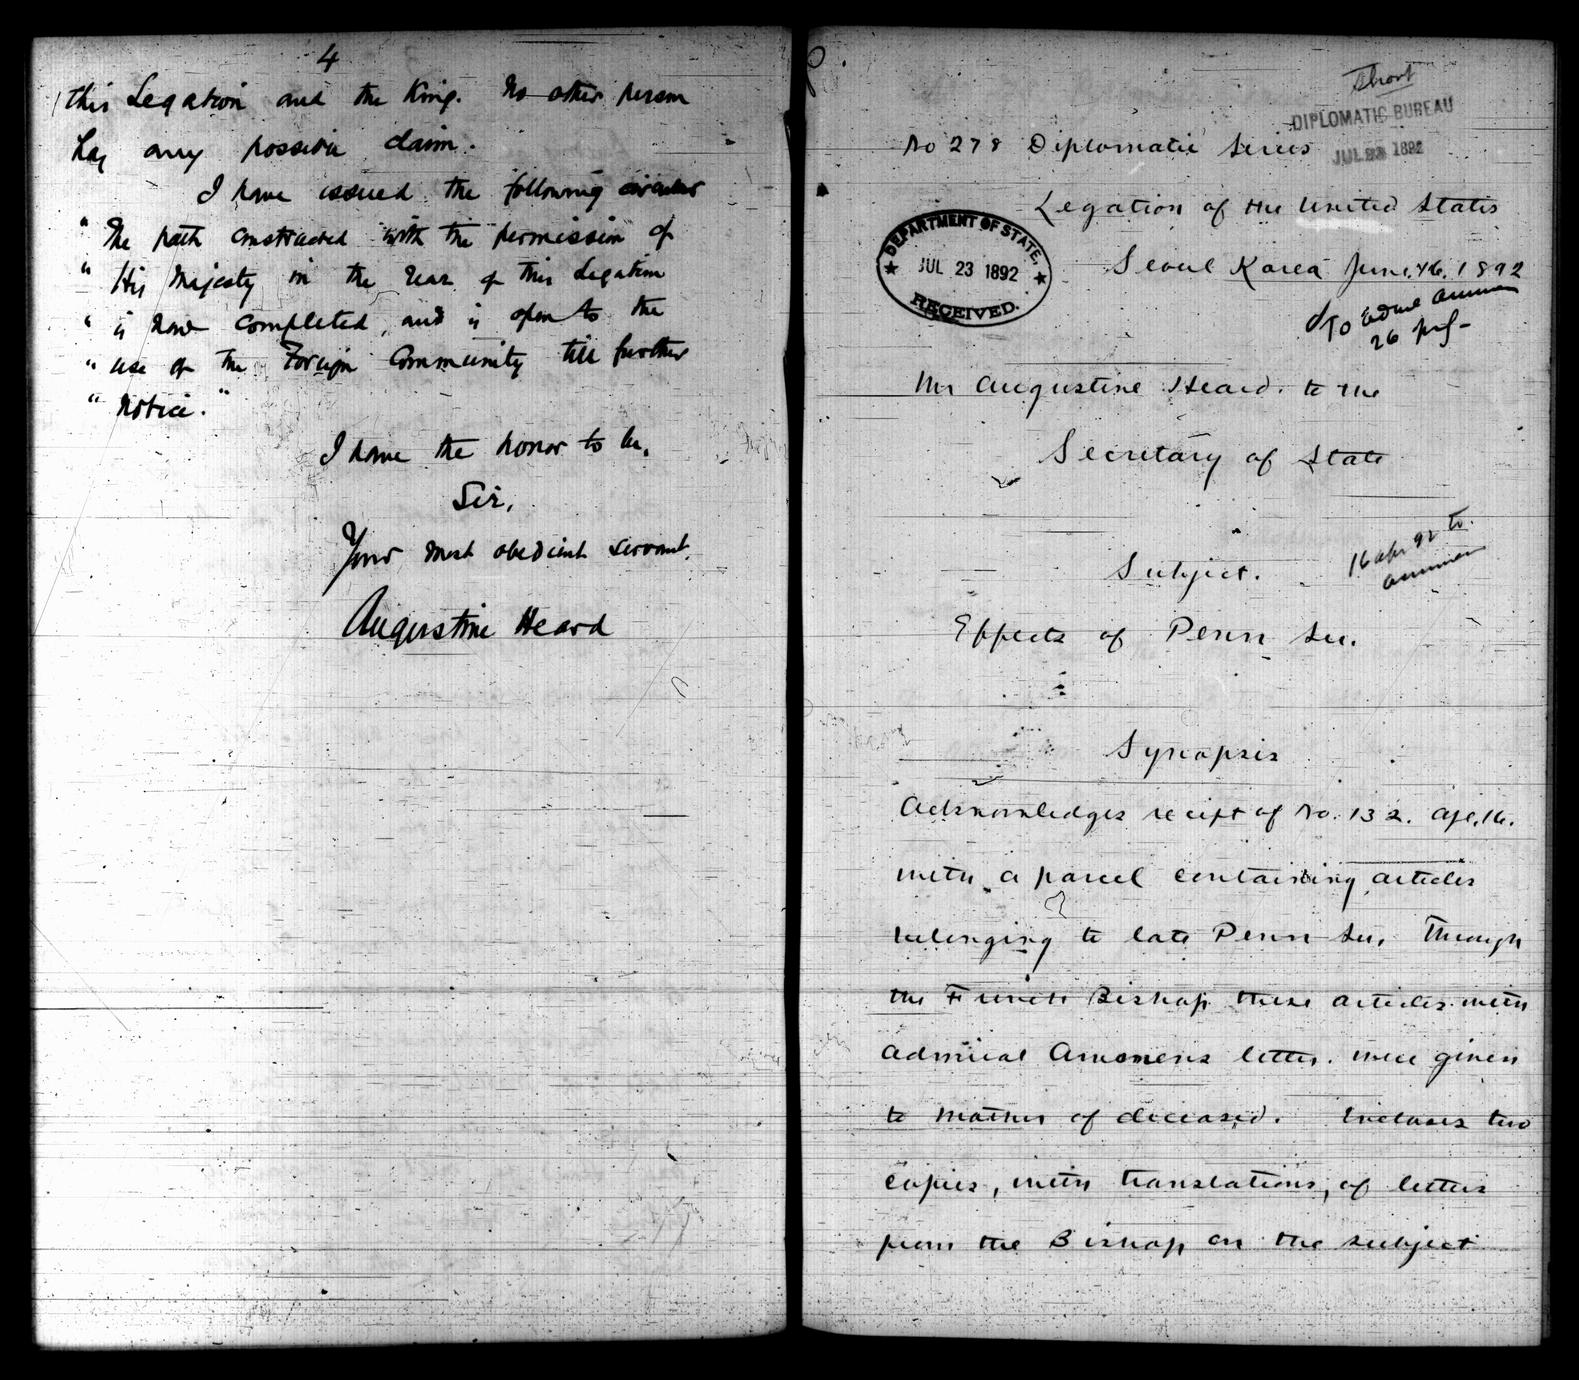 4
this Legation and the King. No other person
has any possible claim.
I have issued the following circular
" The path constructed with the permission of
" His Majesty in the rear of this Legation
" is now completed, and is open to the
" use of the Foreign Community till further
" notice."
I have the honor to be,
Sir,
Your most obedient servant
Augustine Heard
DIPLOMATIC BUREAU
JUL 23 1892
No 278 Diplomatic Series
Legation of the United States
DEPARTMENT OF STATE.
JUL 23 1892
RECEIVED.
Seoul Korea June 16. 1892
To
26
Mr Augustine Heard. to the
Secretary of State
16 apr 92 to.
Ammen
Subject.
Effects of Penn Su.
Synopsis
Acknowledges receipt of No. 132. Apl. 16.
with a parcel containing articles
belonging to late Penn Su. Through
the French Bishop these articles with
Admiral Ammen's letter. were given
to mother of deceased. Encloses two
copies, with translations, of letters
from the Bishop on the subject